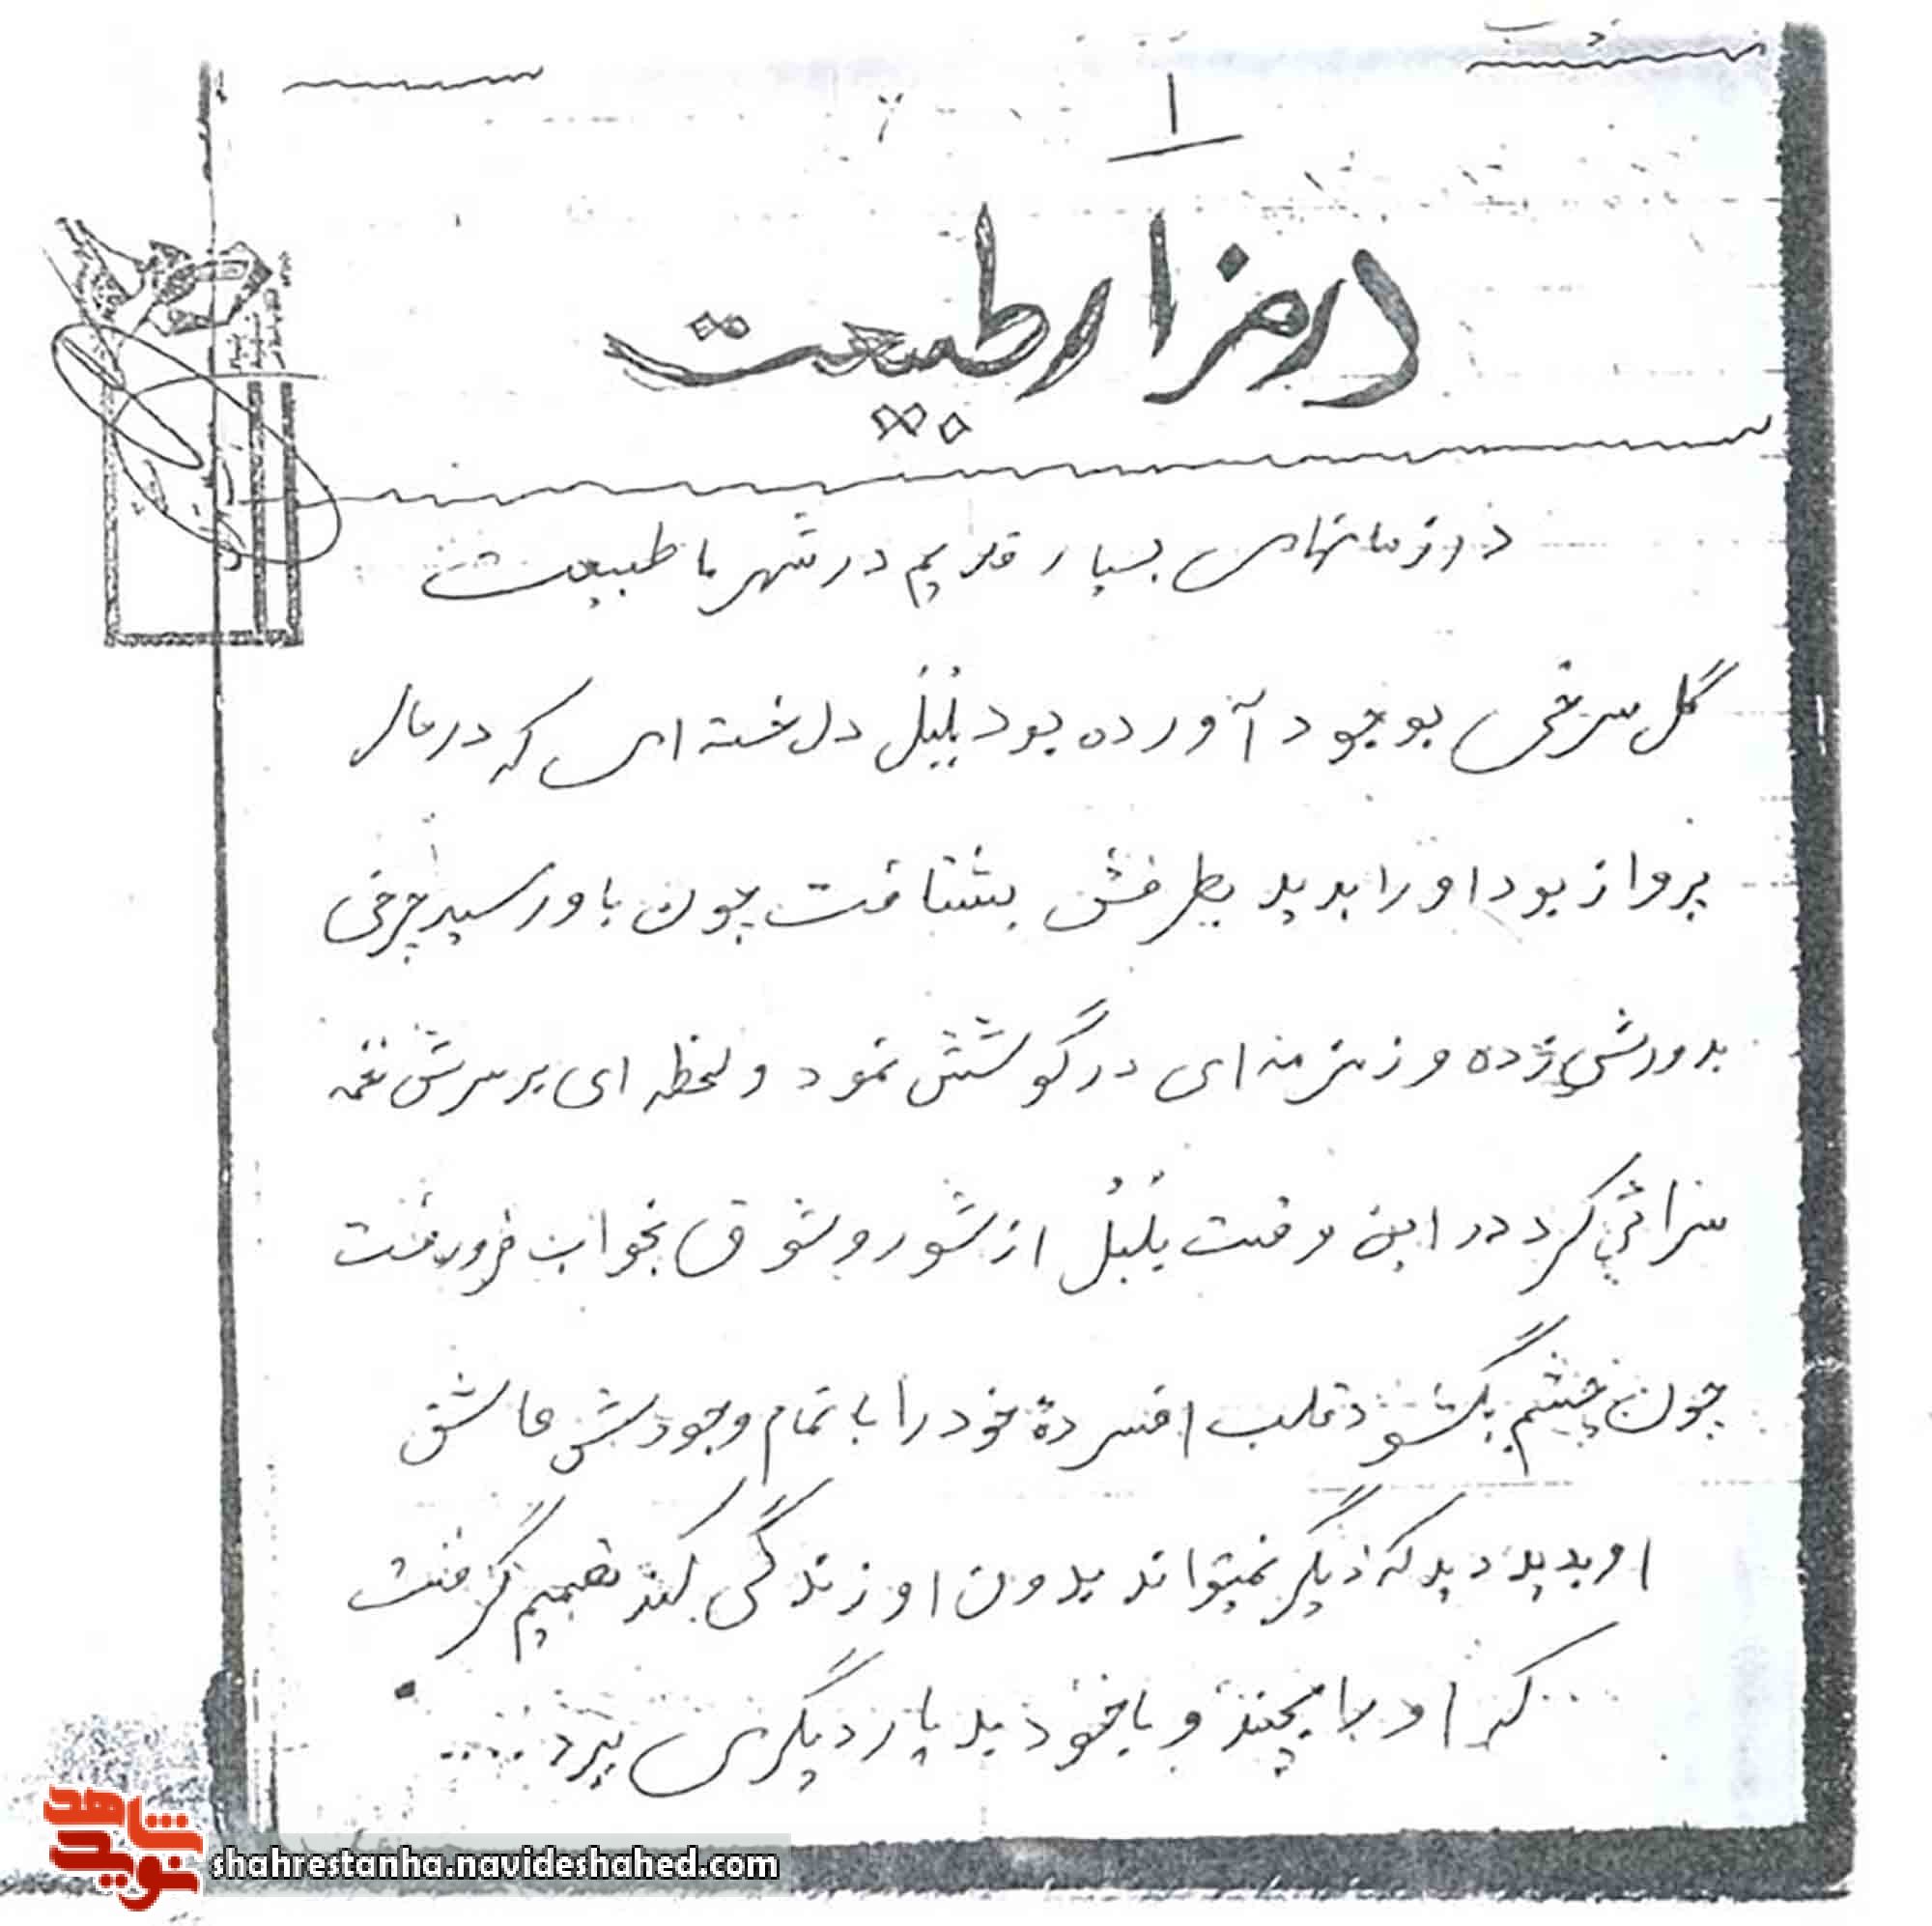 ۱
در مزار طبیعت
در زمانهای بسیار قدیم در شهر ما طبیعت
گل سرخی بوجود آورده بود بُلبُل دلخسته ای که در حال
پرواز بود او را بدید بطرفش بشتافت چون باو رسید چرخی
بدورش زده و زمزمه ای در گوشش نمود و لحظه ای بر سرش نغمه
سرائی کرد در این وقت بُلبُل از شور و شوق بخواب فرو رفت
چون چشم بگشود قلب افسردهٔ خود را با تمام وجودش عاشق
او بدید دید که دیگر نمیتواند بدون او زندگی کند تصمیم گرفت
که او را بچیند و با خود بدیار دیگری ببرد....
شاهد
نوید
shahrestanha.navideshahed.com